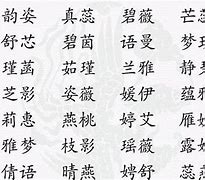 韵姿 真蕊 碧薇 芒
舒芯 碧茵 语曼 梦
瑾菡 茹瑾 兰雅 静
芝影 姿薇 媛伊 蕴
莉惠 燕桃 婷艾 雁
雅梦 枝影 瑶薇 露
倩语 晴燕 娉舒 蕊